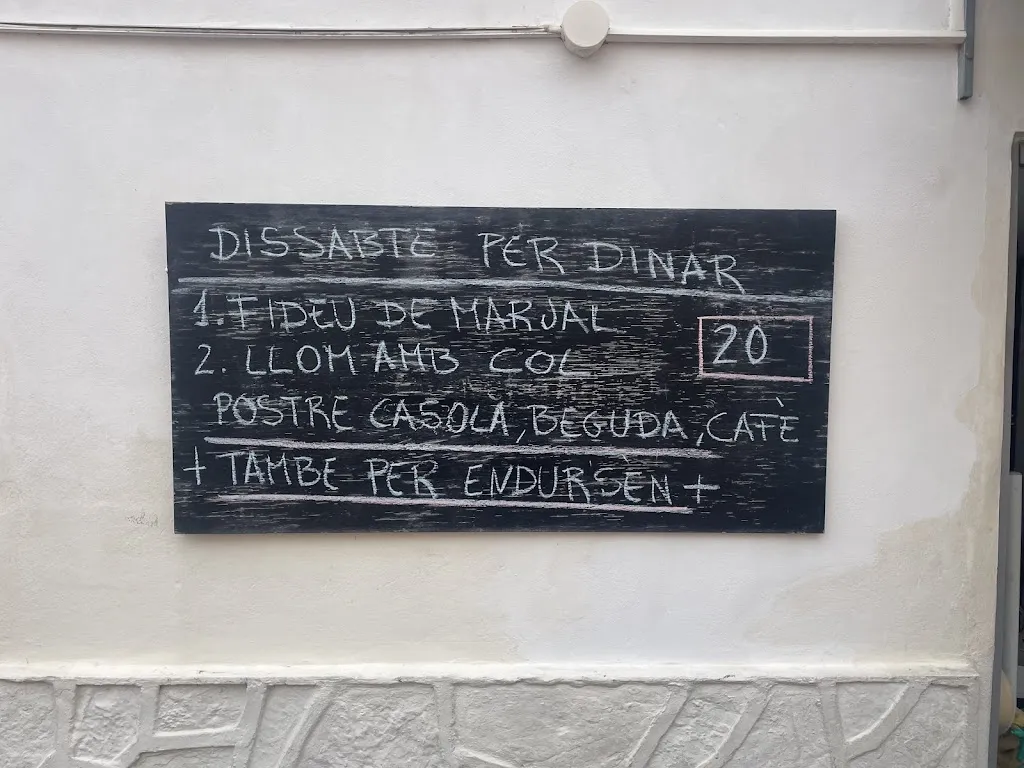 DISSABTE PER DINAR
1. FIDEU DE MARJAL
2. LLOM AMB COL
20
POSTRE CASOLA, BEGUDA, CAFÈ
+ TAMBE PER ENDUR'SÈN +